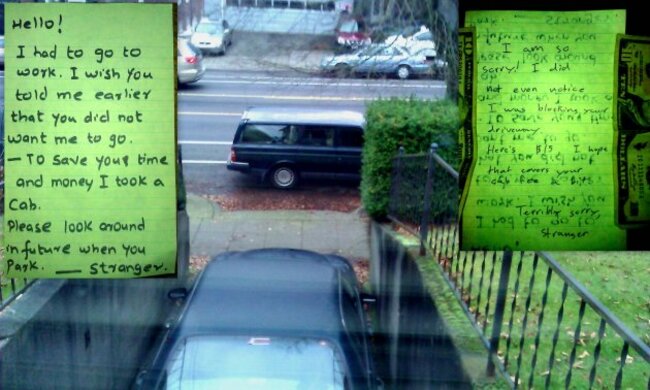 Hello!
I had to go to
work. I wish you
told me earlier
that you did not
want me to go.
— To save your time
and money I took a
Cab.
Please look around
in future when you
Park. — Stranger.
I am so
sorry! I did
not even notice
I was blocking your
driveway.
Here's I hope
that covers your
Terribly sorry,
Stranger